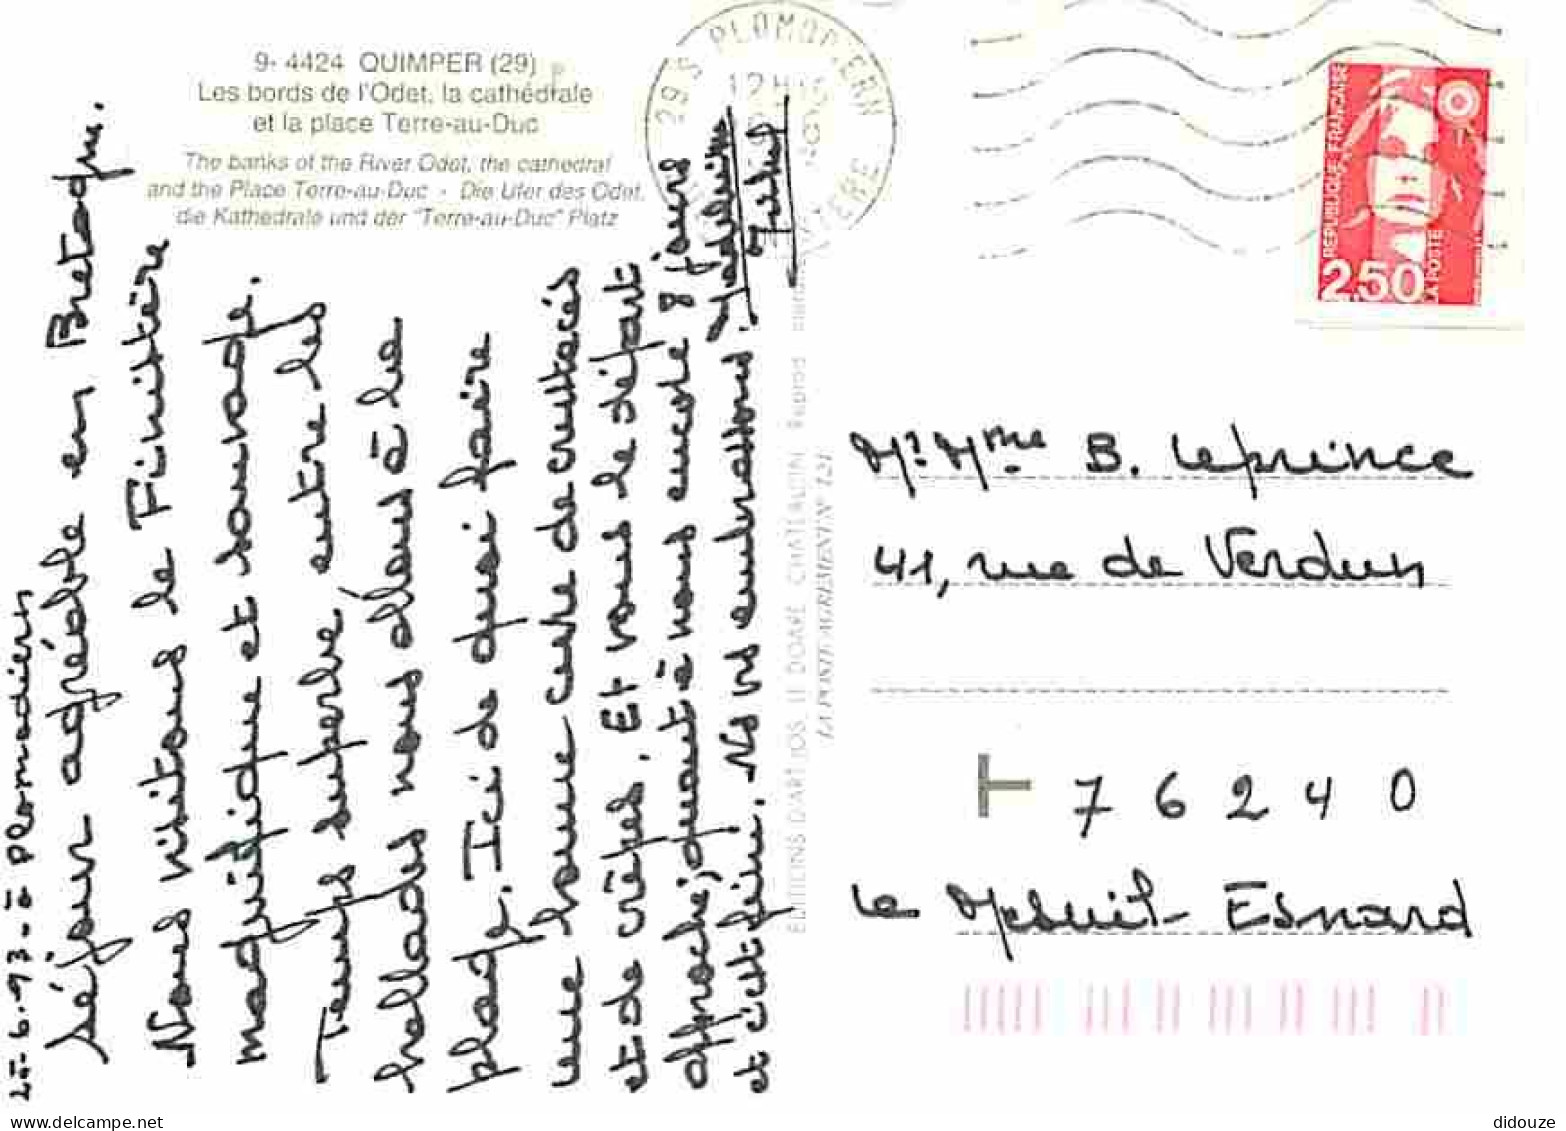 9- 4424 QUIMPER (29)
Les bords de l'Odet, la cathédrale
et la place Terre-au-Duc
The banks of the River Odet, the cathedral
and the Place Terre-au-Duc - Die Ufer des Odet,
die Kathedrale und der "Terre-au-Duc" Platz
6.93 - à Plomodiern
Séjour agréable en Bretagne.
Nous visitons le Finistère
magnifique et sauvage.
Temps superbe, entre les
ballades nous allons à la
plage. Ici de quoi faire
une bonne cure de crustacés
et de crêpes. Et vous le départ
approche, quant à nous encore 8 jours
et c'est fini. Ns vs embrassons.
EDITIONS D'ART JOS LE DOARE CHATEAULIN
LA POSTE AGREMENT N° 121
29 S PLOMODIERN
12H
REPUBLIQUE FRANCAISE
LA POSTE
2,50
Mr. Mme. B. Leprince
41, rue de Verdun
T 7 6 2 4 0
Le Mesnil-Esnard
www.delcampe.net
didouze